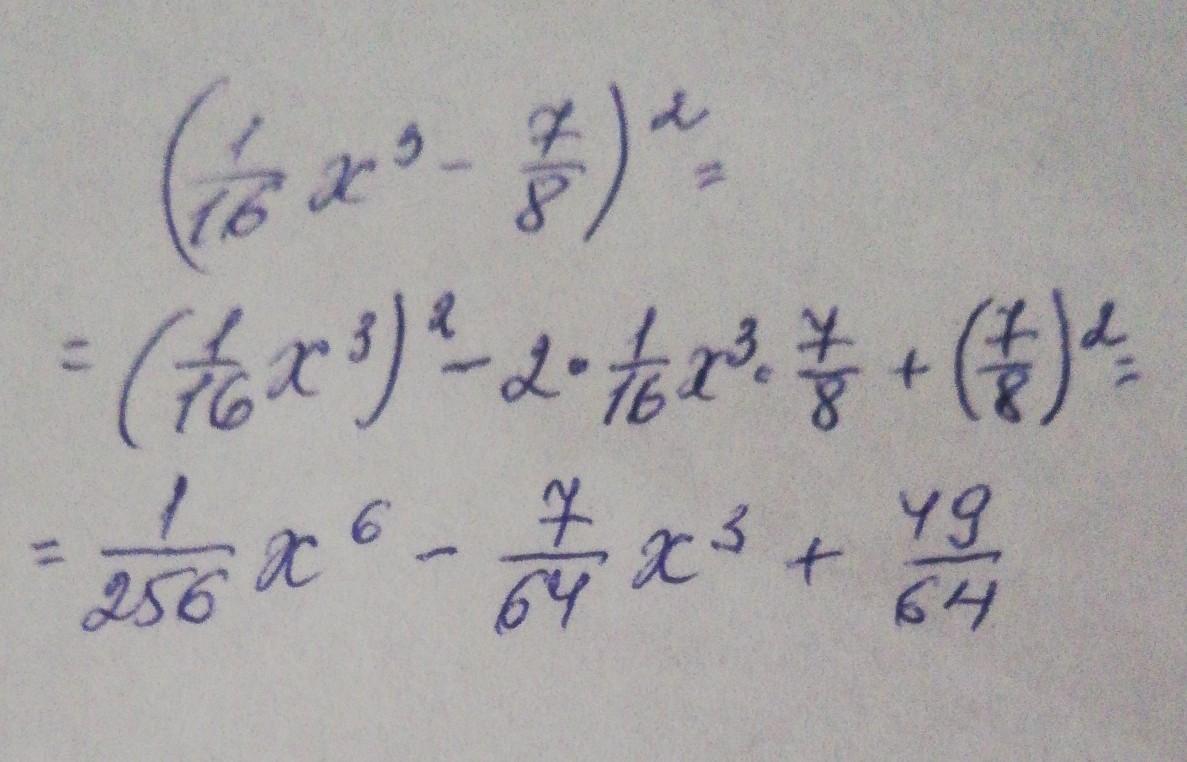 (1/16 x³ - 7/8)² =
= (1/16 x³)² - 2 · 1/16 x³ · 7/8 + (7/8)² =
= 1/256 x⁶ - 7/64 x³ + 49/64